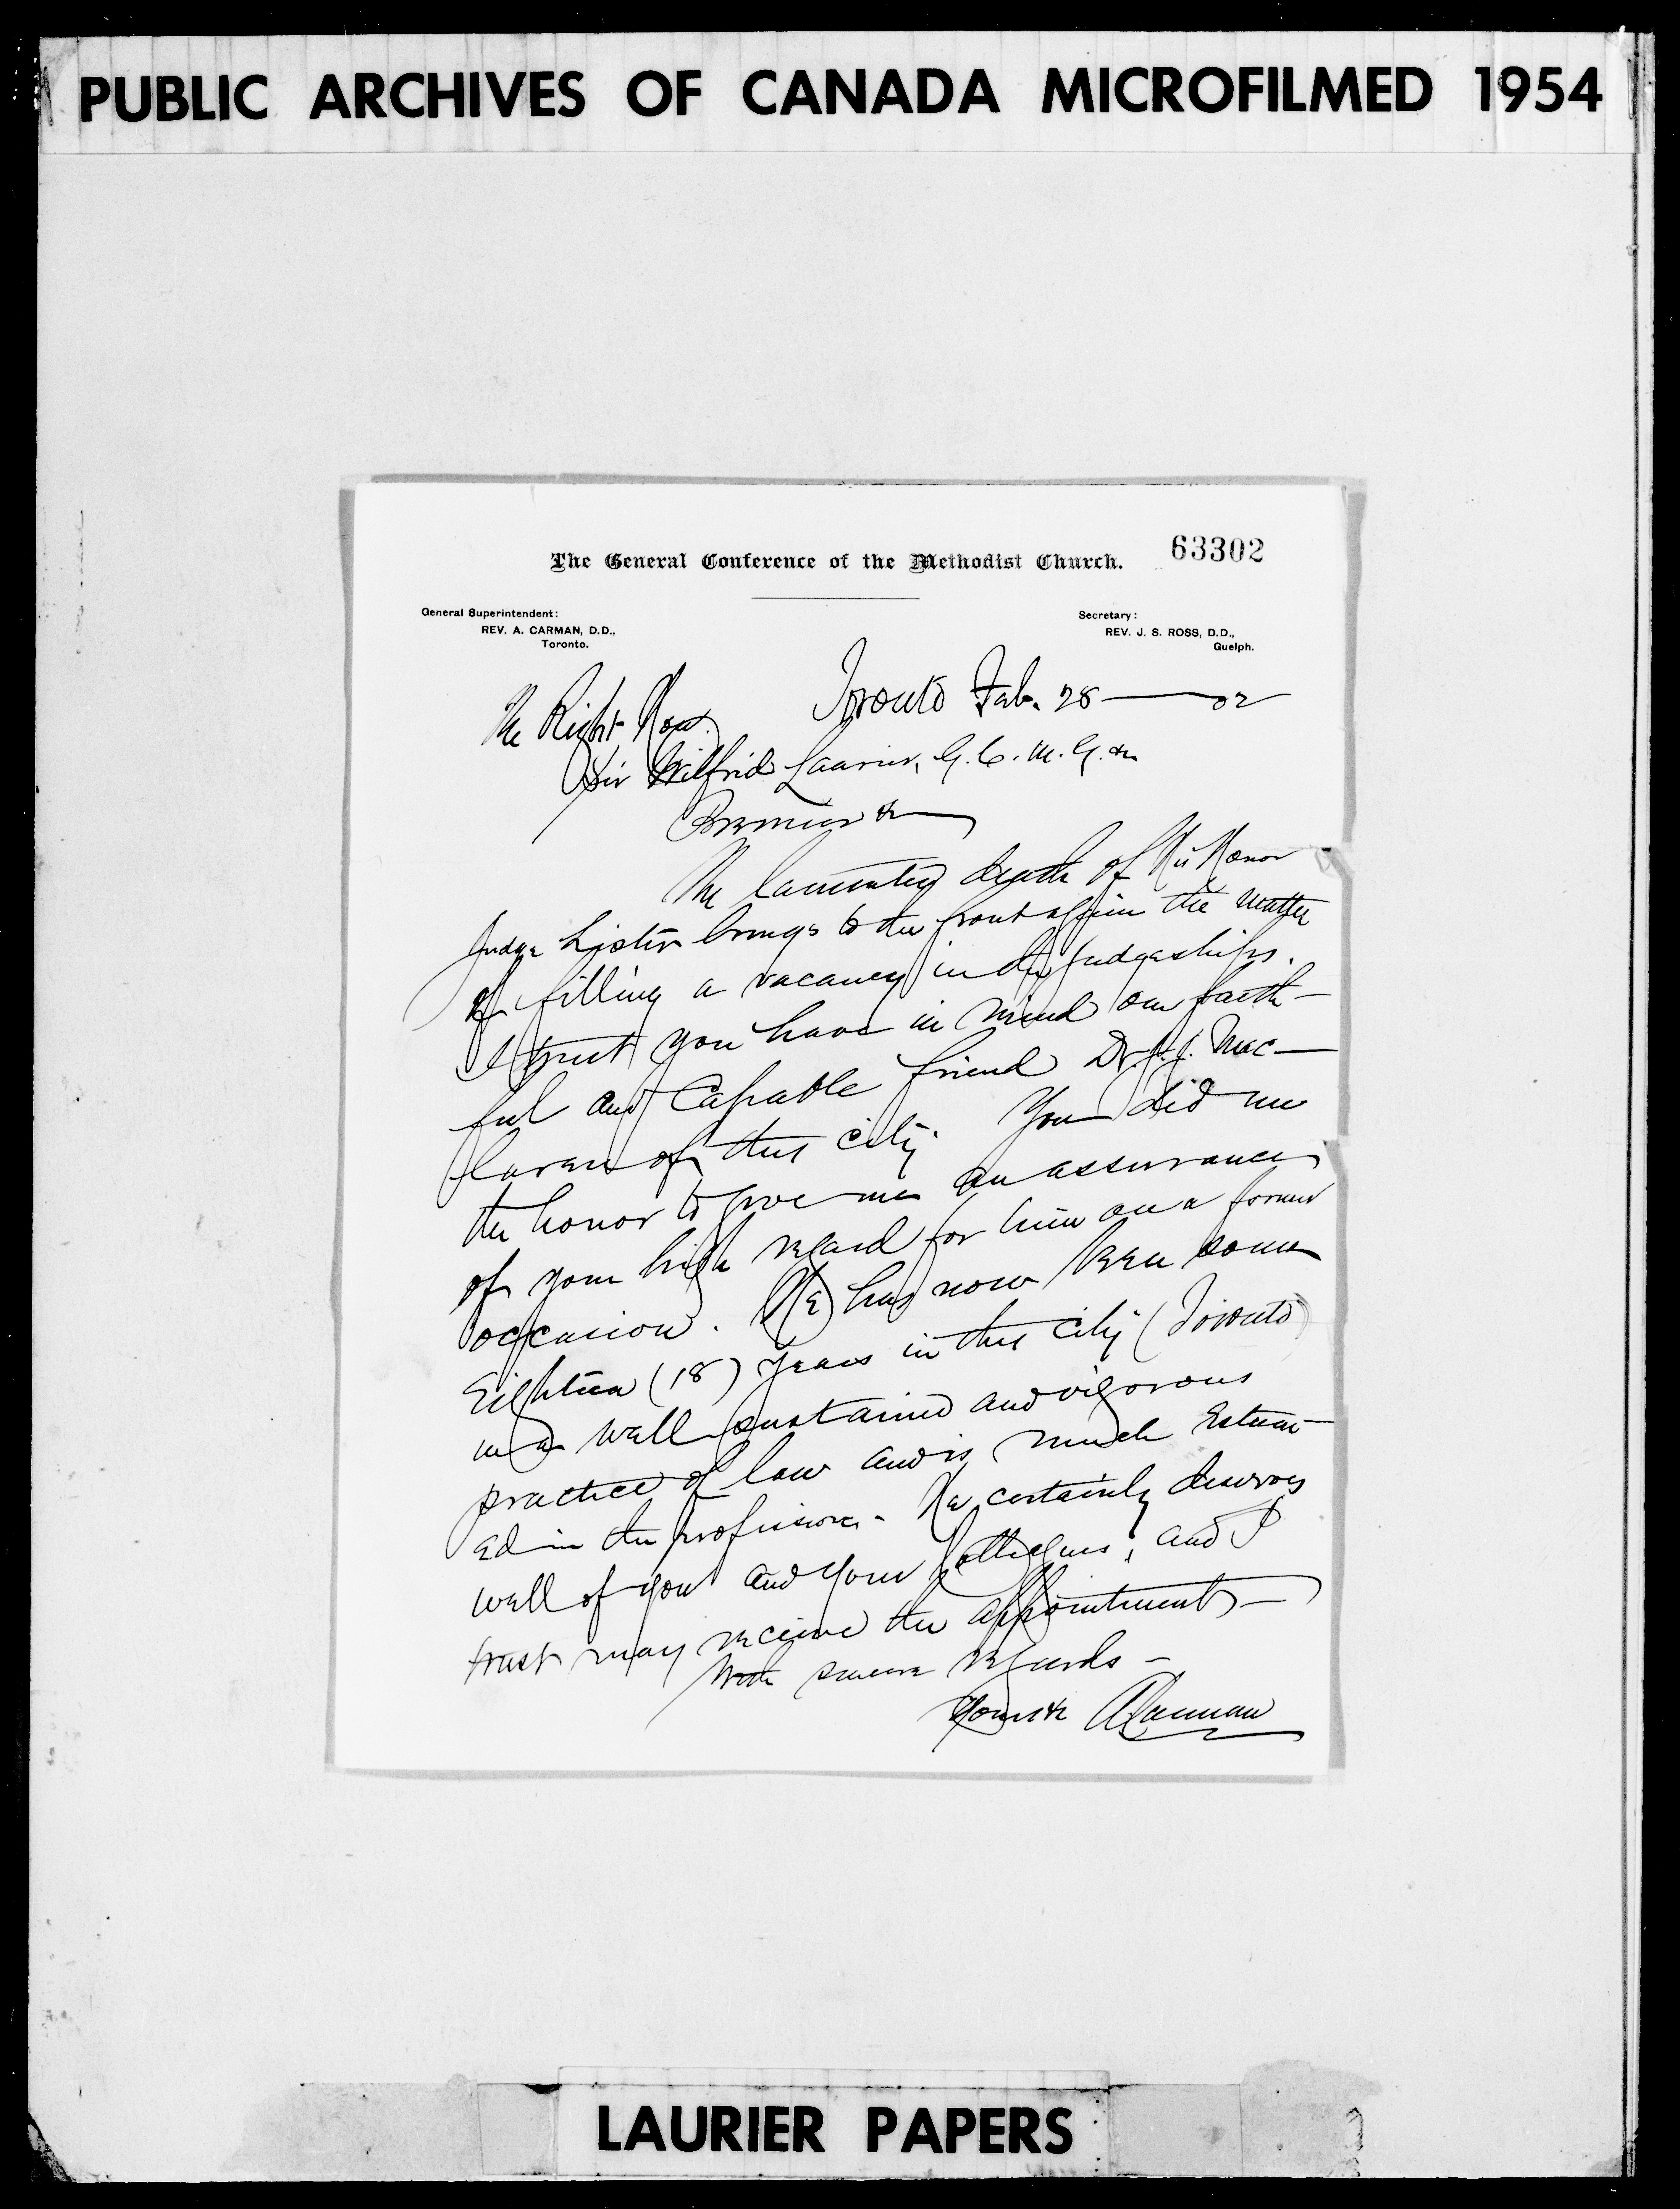 PUBLIC ARCHIVES OF CANADA MICROFILMED 1954
63302
The General Conference of the Methodist Church.
General Superintendent:
REV. A. CARMAN, D.D.,
Toronto.
Secretary:
REV. J. S. ROSS, D.D.,
Guelph.
Toronto Feb. 28 — 02
The Right Hon.
Sir Wilfrid Laurier, G.C.M.G. &c
Premier &c
The lamented death of His Honor
Judge Lister brings to the front again the matter
of filling a vacancy in the Judgeships.
I trust you have in mind our faith-
ful and capable friend Dr. J. J. Mac-
laren of this city. You did me
the honor to give me an assurance
of your high regard for him on a former
occasion. He has now been some
Eighteen (18) years in this city (Toronto)
in a well sustained and vigorous
practice of law and is much Esteem-
ed in the profession. He certainly deserves
well of you and your Colleagues; and I
trust may receive the appointment —
With sincere regards —
Yours &c A Carman
LAURIER PAPERS